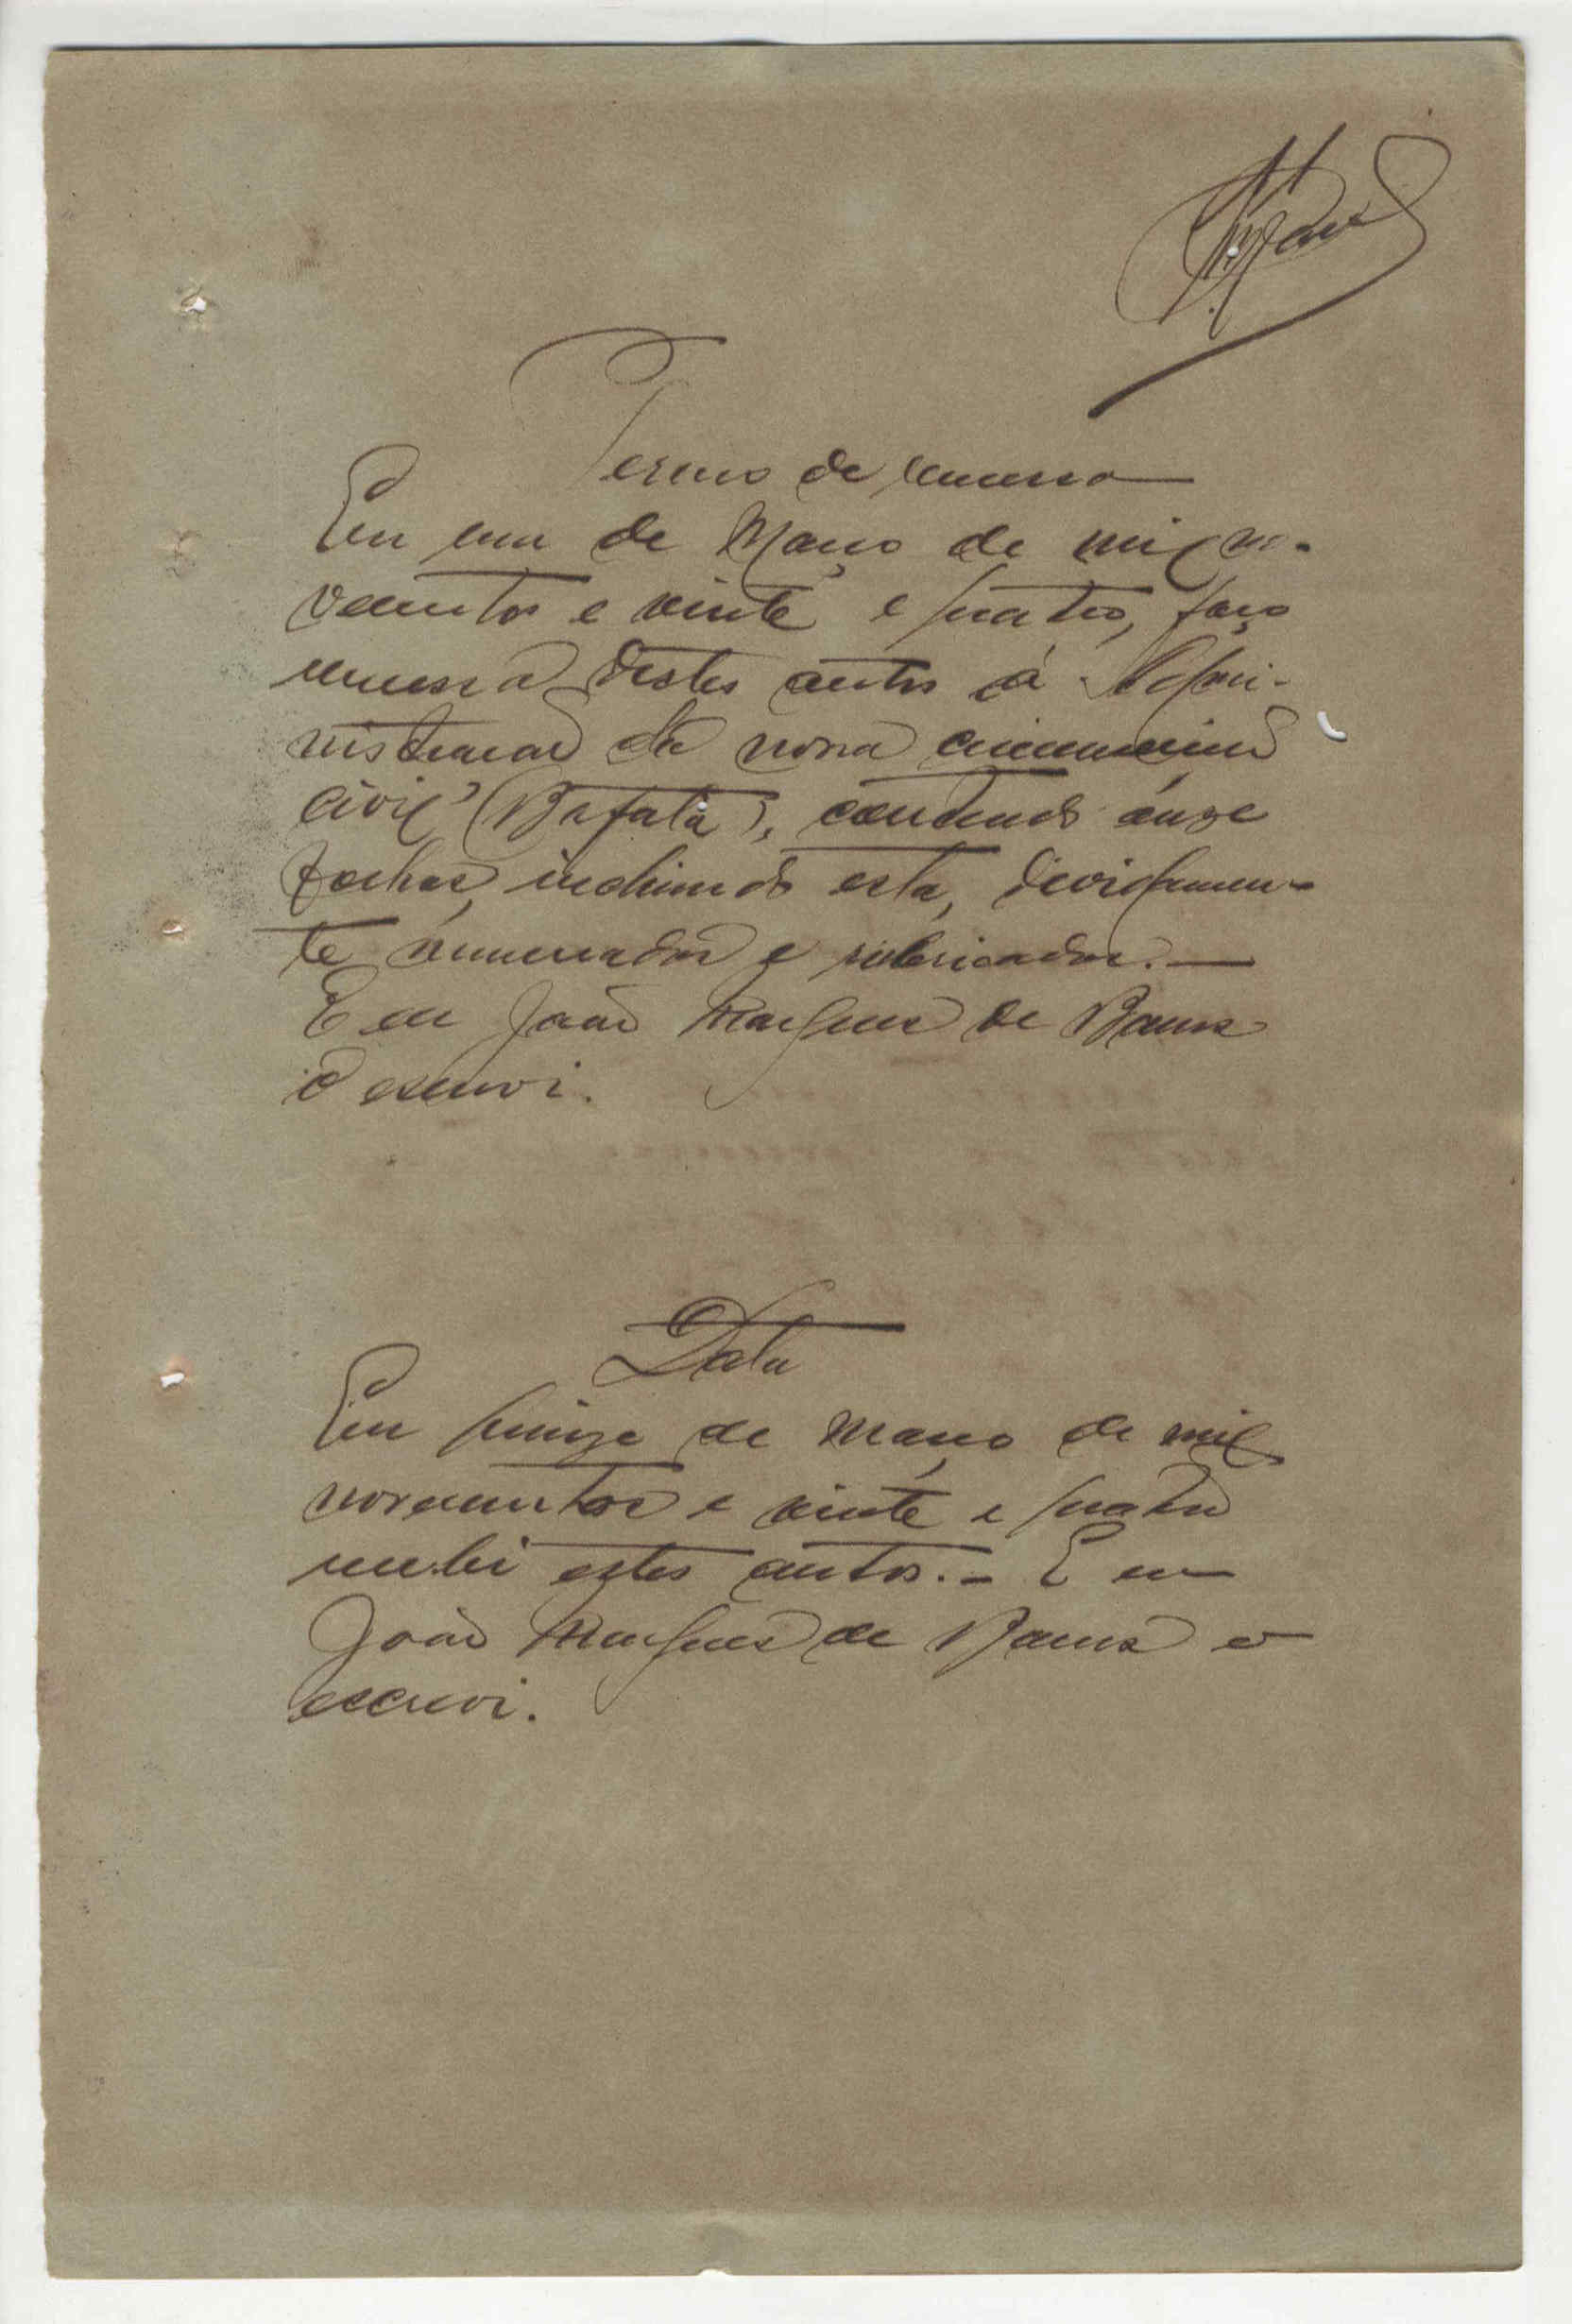 Termo de remessa
Em um de Março de mil no-
vecentos e vinte e quatro, faço
remessa destes autos á Admi-
nistração da nona circunscrição
civil (Bafatá), contendo onze
folhas, incluindo esta, devidamen-
te numeradas e rubricadas.
E eu João Marques de Barros
o escrevi.
Data
Em quinze de Março de mil
novecentos e vinte e quatro
recebi estes autos.- E eu
João Marques de Barros o
escrevi.